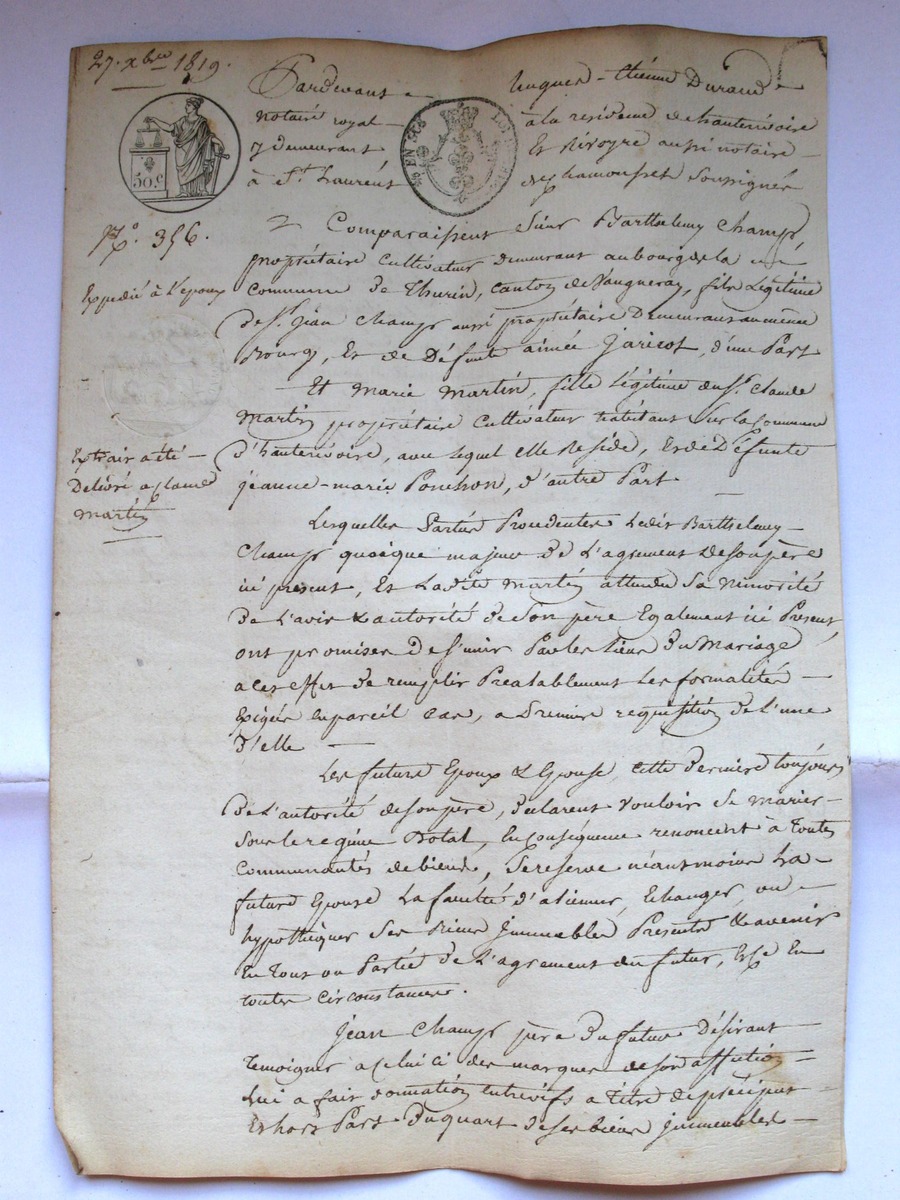 27. xbre 1819.
Pardevant hugues-étiéne Durand
notaire royal à la residence de hauterivoire
y demeurant Et Rivoyre aussi notaire
à St. Laurent de chamousset soussignés
50.c
No. 356.
Comparaissent Sieur Barthelemy Champ
propriétaire cultivateur demeurant au bourg de la
Commune de Thurin, canton de Vaugneray, fils légitime
de Sr. jean Champ aussi propriétaire Demeurant au même
Bourg, Et de Défunte aimée Jaricot, d'une Part
Expedié à l'epoux
Et Marie Martin, fille légitime du Sr. Claude
Martin propriétaire cultivateur habitant sur la Commune
d'hauterivoire, avec lequel elle Reside, Et de Défunte
jeanne-marie Ponchon, d'autre Part.
Extrait a été
Delivré a claude
Martin
Lesquelles Parties Procedentes Ledit Barthelemy
Champ quoique majeur de L'agrement de son père
ici present, Et Ladite Martin attendu Sa Minorité
de L'avis & autorité de Son père Egalement ici Present,
ont promises de S'unir Par les liens du Mariage
a cet effet de remplir Préalablement Les formalités
Exigées en pareil cas, a Premiere requisition de L'une
d'elle
Les futurs Epoux & Epouse, cette derniere toujours
De L'autorité de son père, declarent Vouloir Se marier
Sous le regime Dotal, En conséquence renoncent à toutes
Communautés de biens, Se reserve néantmoins La
future Epouse La faculté d'aliener, Echanger, ou
hypothéquer Ses Biens Immeubles Presents & avenir
En Tout ou Partie de L'agrement du futur, Et ce En
toutes circonstances.
Jean Champ père du futur Désirant
Temoigner a celui ci des marques de son affection
Lui a fait donation entrevifs a Titre de préciput
Et hors Part Du quart de Ses biens Immeubles